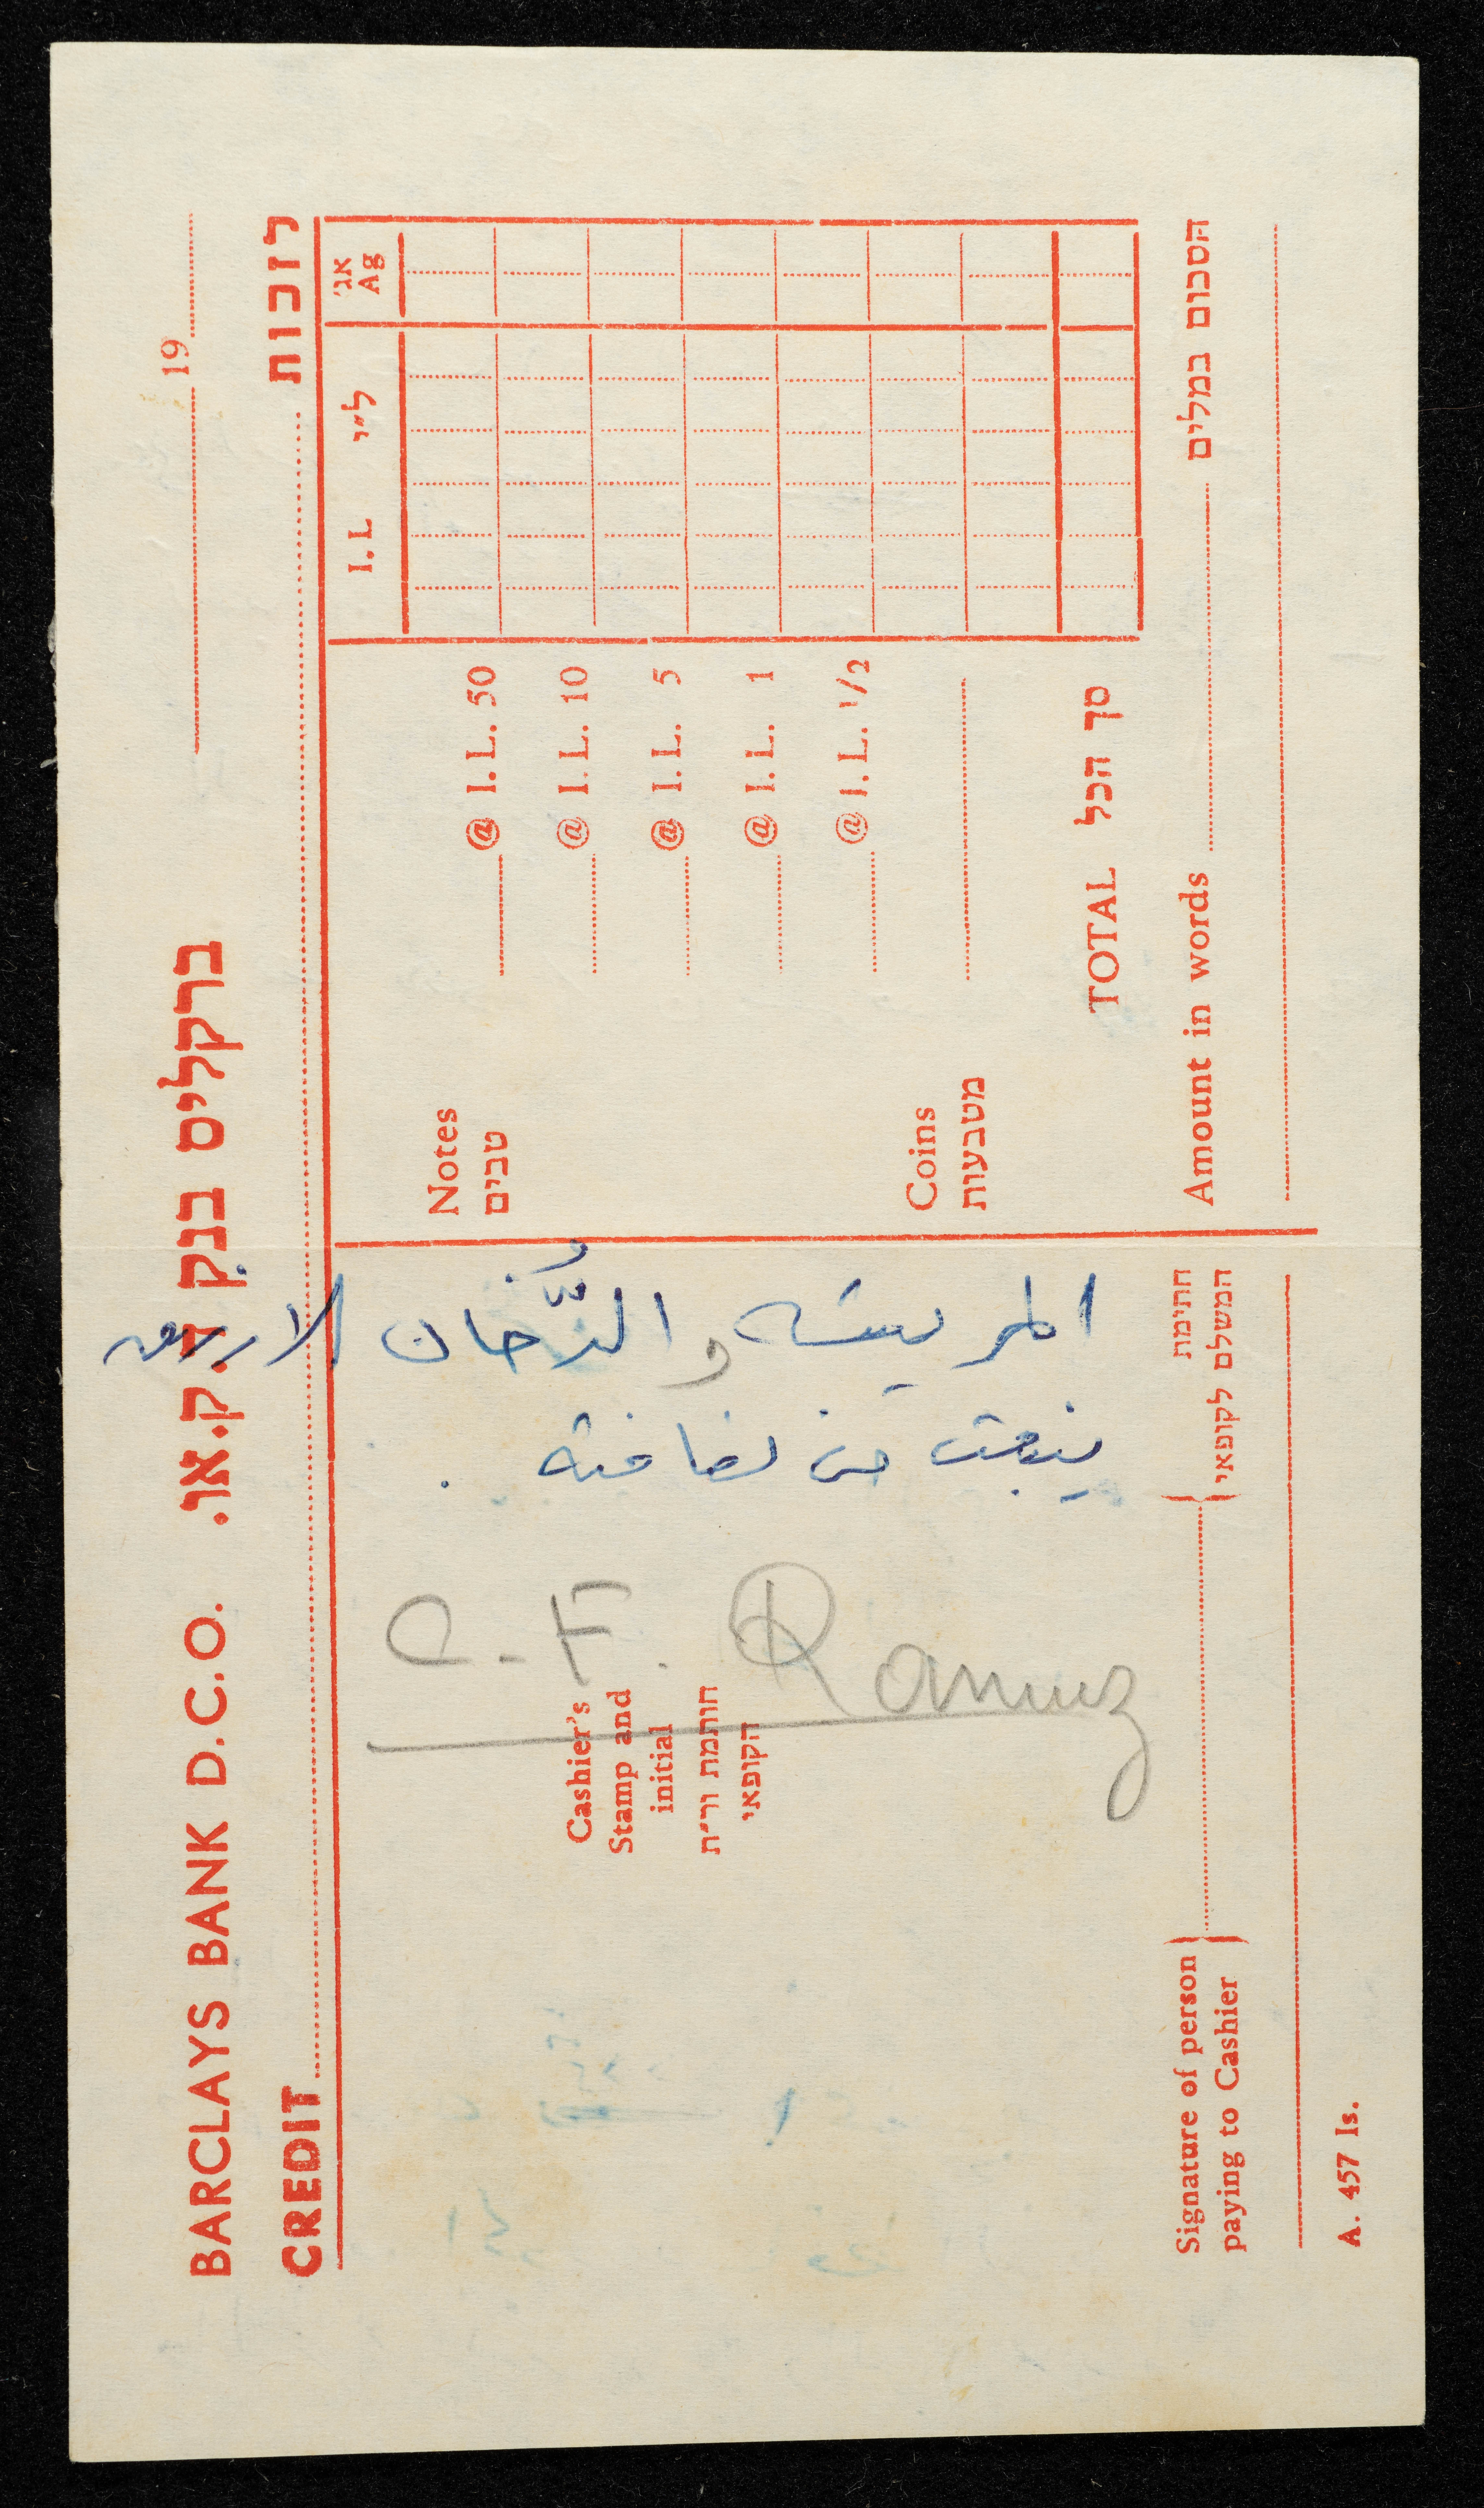 19
BARCLAYS BANK D.C.O. ברקליס בנק ד.ק.או.
CREDIT לזכות
I.L ל״י אג׳ Ag
Notes טבים
@ I. L. 50
@ I. L. 10
@ I. L. 5
@ I. L. 1
@ I. L. 1/2
Coins מטבעות
TOTAL סך הכל
Amount in words הסכום במלים
والدُّخان الازرق
ينبعث من لفافته .
C-F. Ramuz
Cashier's
Stamp and
initial
חותמת ור״ת
הקופאי
Signature of person
paying to Cashier
חתימת
המשלם לקופאי
A. 457 Is.